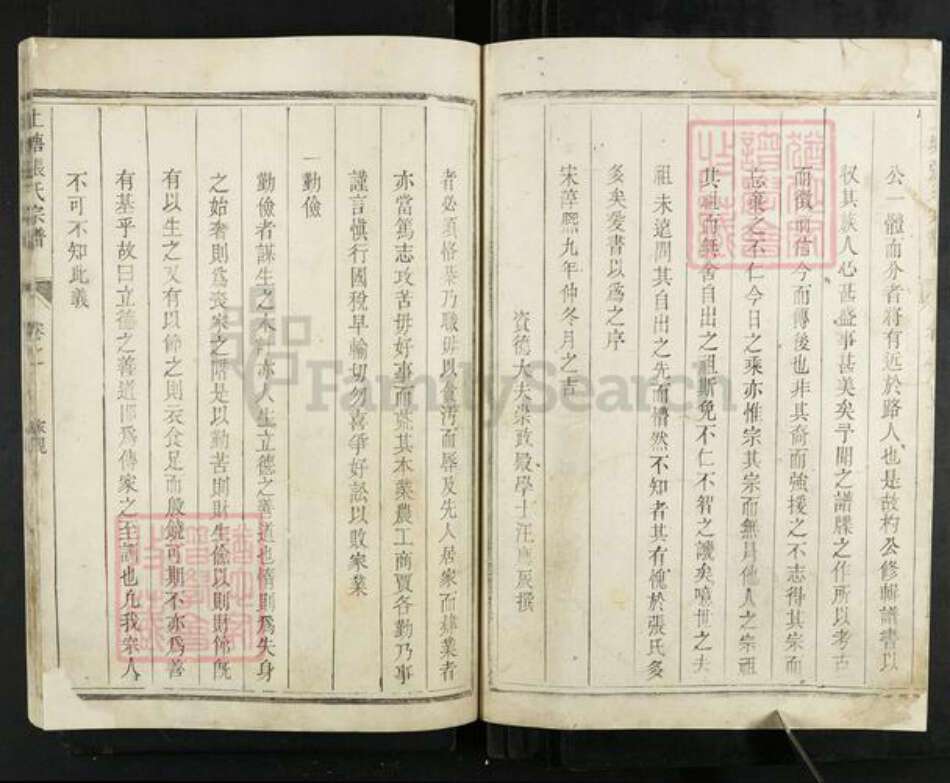 公一體而分者將有近於路人也是故杓公修輯譜書以
収其族人心甚盛事甚美矣予聞之譜牒之作所以考古
而徵信今而傳後也非其裔而強援之不志得其宗而
忘棄之不仁今日之乘亦惟宗其宗而無冒他人之宗祖
其祖而無舍自出之祖斯免不仁不智之譏矣噫世之去
祖未遠問其自出之先而懵然不知者其有愧於張氏多
多矣爰書以爲之序
宋淳熙九年仲冬月之吉
資德大夫崇政殿學士汪應辰撰
者必須恪恭乃職毋以貪汚而辱及先人居家而肄業者
亦當篤志攻苦毋好事而荒其本業農工商賈各勤乃事
謹言慎行國稅早輸切勿喜爭好訟以敗家業
一勤儉
勤儉者謀生之本亦人生立德之善道也惰則爲失身
之始奢則爲喪家之階是以勤苦則財生儉以則財節既
有以生之又有以節之則衣食足而殷饒可期不亦爲善
有基乎故曰立德之善道即爲傳家之至訓也凡我宗人
不可不知此義
上塘張氏宗譜 卷之一 家規
FamilySearch